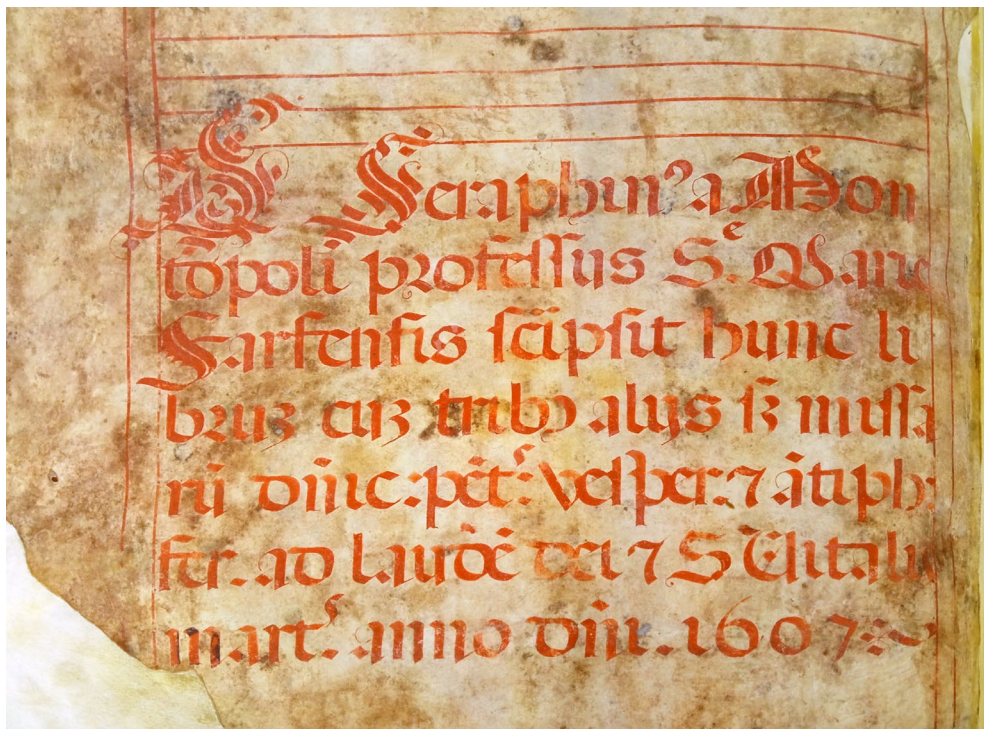 D. Seraphin⁹ a Mon
topoli professus S.e Marie
Farfensis scripsit hunc li
bruꝫ cuꝫ tribꝰ alijs sꝫ missa
rū dn̄ic: pēt: vesper: ⁊ ātiph:
fer. ad laudē dei ⁊ S Vitalis
mart. anno dn̄i. 1607